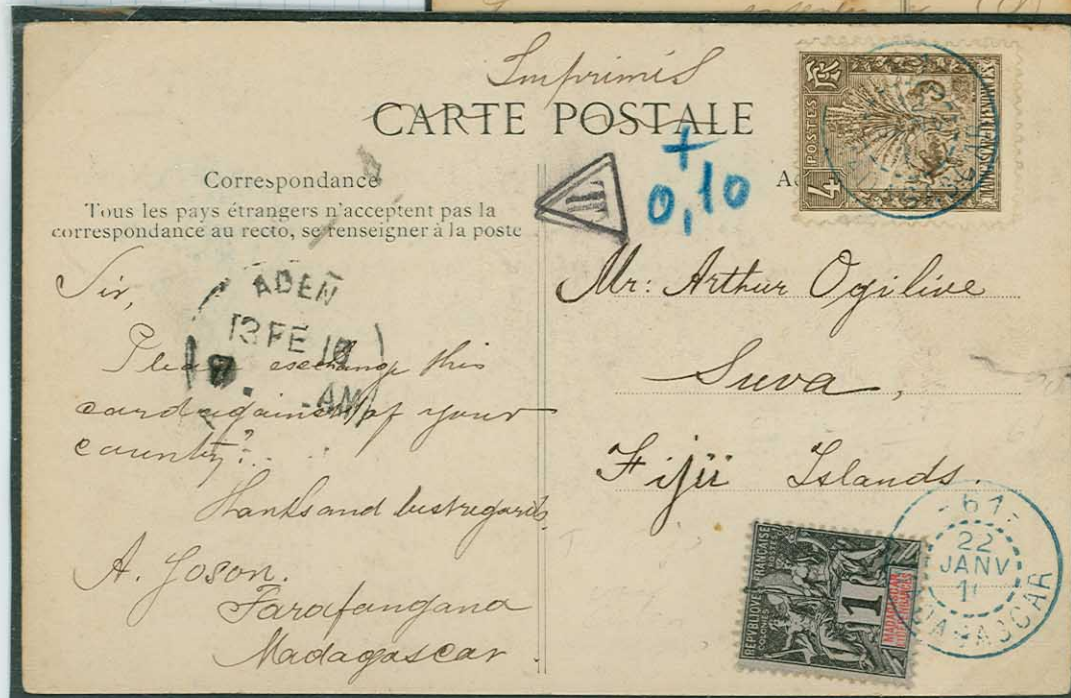 Imprimés
CARTE POSTALE
Correspondance
Tous les pays étrangers n'acceptent pas la
correspondance au recto, se renseigner à la poste
T
+
0,10
POSTES
4
MADAGASCAR ET DÉPENDANCES
ADEN
13 FE 10
AM
Sir,
Please exchange this
card against of your
country?
Thanks and best regards.
A. Joson.
Farafangana
Madagascar
Mr: Arthur Ogilive
Suva,
Fijii Islands.
REPUBLIQUE FRANCAISE
COLONIES
POSTES
1
MADAGASCAR
ET DÉPENDANCES
61
22
JANV
MADAGASCAR